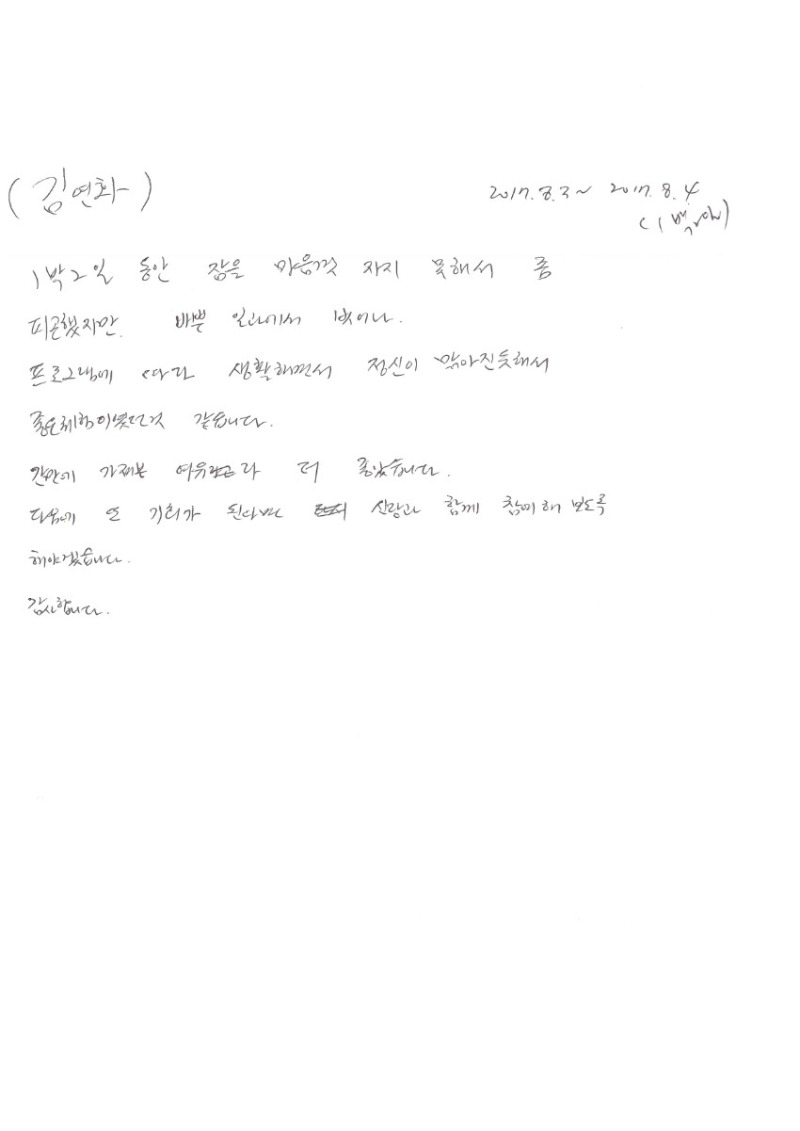 (김연화)
2017.8.3~ 2017.8.4
(1박2일)
1박2일 동안 잠을 마음껏 자지 못해서 좀
피곤했지만. 바쁜 일과에서 벗어나.
프로그램에 따라 생활하면서 정신이 맑아진듯해서
좋은체험이였던것 같습니다.
간만에 가져본 여유라 더 좋았습니다.
다음에 또 기회가 된다면 신랑과 함께 참여해 보도록
해야겠습니다.
감사합니다.